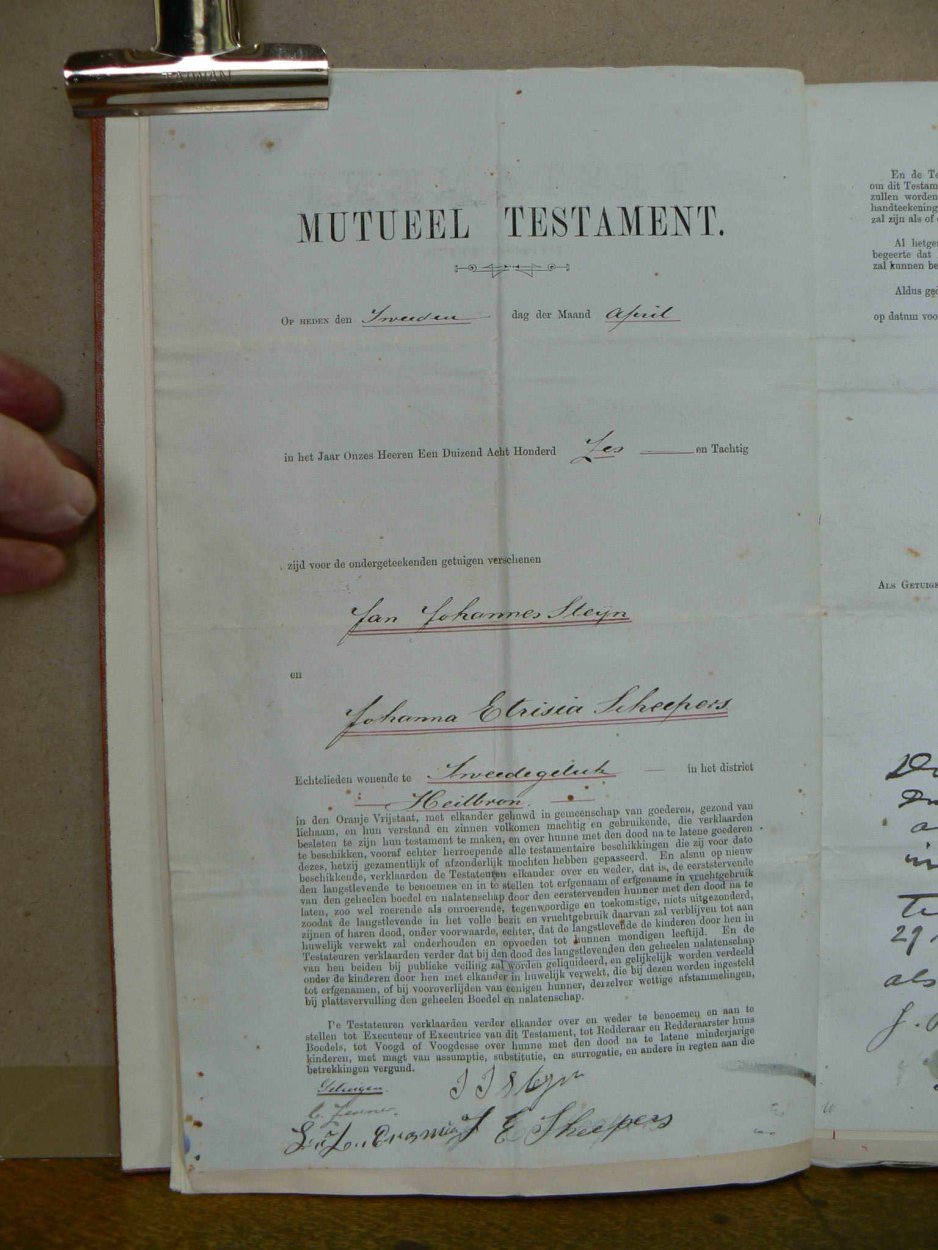 TAIWAN
MUTUEEL TESTAMENT.
OP HEDEN den Tweeden dag der Maand April
in het Jaar Onzes Heeren Een Duizend Acht Honderd Zes en Tachtig
zijd voor de ondergeteekenden getuigen verschenen
Jan Johannes Steijn
en
Johanna Etrisia Scheepers
Echtelieden wonende te Tweedegeluk in het district
Heilbron.
in den Oranje Vrijstaat, met elkander gehuwd in gemeenschap van goederen, gezond van
lichaam, en hun verstand en zinnen volkomen machtig en gebruikende, die verklaarden
besloten te zijn hun testament te maken, en over hunne met den dood na te latene goederen
te beschikken, vooraf echter herroepende alle testamentaire beschikkingen die zij voor dato
dezes, hetzij gezamentlijk of afzonderlijk mochten hebben gepasseerd. En alsnu op nieuw
beschikkende, verklaarden de Testateuren elkander over en weder, dat is, de eerststervende
den langstlevende te benoemen en in te stellen tot erfgenaam of erfgename in vruchtgebruik
van den geheelen boedel en nalatenschap door den eerstervenden hunner met den dood na te
laten, zoo wel roerende als onroerende, tegenwoordige en toekomstige, niets uitgezonderd,
zoodat de langstlevende in het volle bezit en vruchtgebruik daarvan zal verblijven tot aan
zijnen of haren dood, onder voorwaarde, echter, dat de langstlevende de kinderen door hen in
huwelijk verwekt zal onderhouden en opvoeden tot hunnen mondigen leeftijd. En de
Testateuren verklaarden verder dat bij den dood des langstlevenden den geheelen nalatenschap
van hen beiden bij publieke veiling zal worden geliquideerd, en gelijkelijk worden verdeeld
onder de kinderen door hen met elkander in huwelijk verwekt, die bij dezen worden ingesteld
tot erfgenamen, of bij vooroverlijden van eenigen hunner, derzelver wettige afstammelingen,
bij plattsvervulling den geheelen Boedel en nalatenschap.
De Testateuren verklaarden verder elkander over en weder te benoemen en aan te
stellen tot Executeur of Executrice van dit Testament, tot Redderaar en Redderaarster huns
Boedels, tot Voogd of Voogdesse over hunne met den dood na te latene minderjarige
kinderen, met magt van assumptie, substitutie, en surrogatie, en andere in regten aan die
betrekkingen vergund.
Getuigen.
J J Steyn
J E Skeepers
En de Te
om dit Testam
zullen worden
handteekening
zal zijn als of
Al hetge
begeerte dat
zal kunnen be
Aldus ged
op datum voo
ALS GETUIGE
29
als